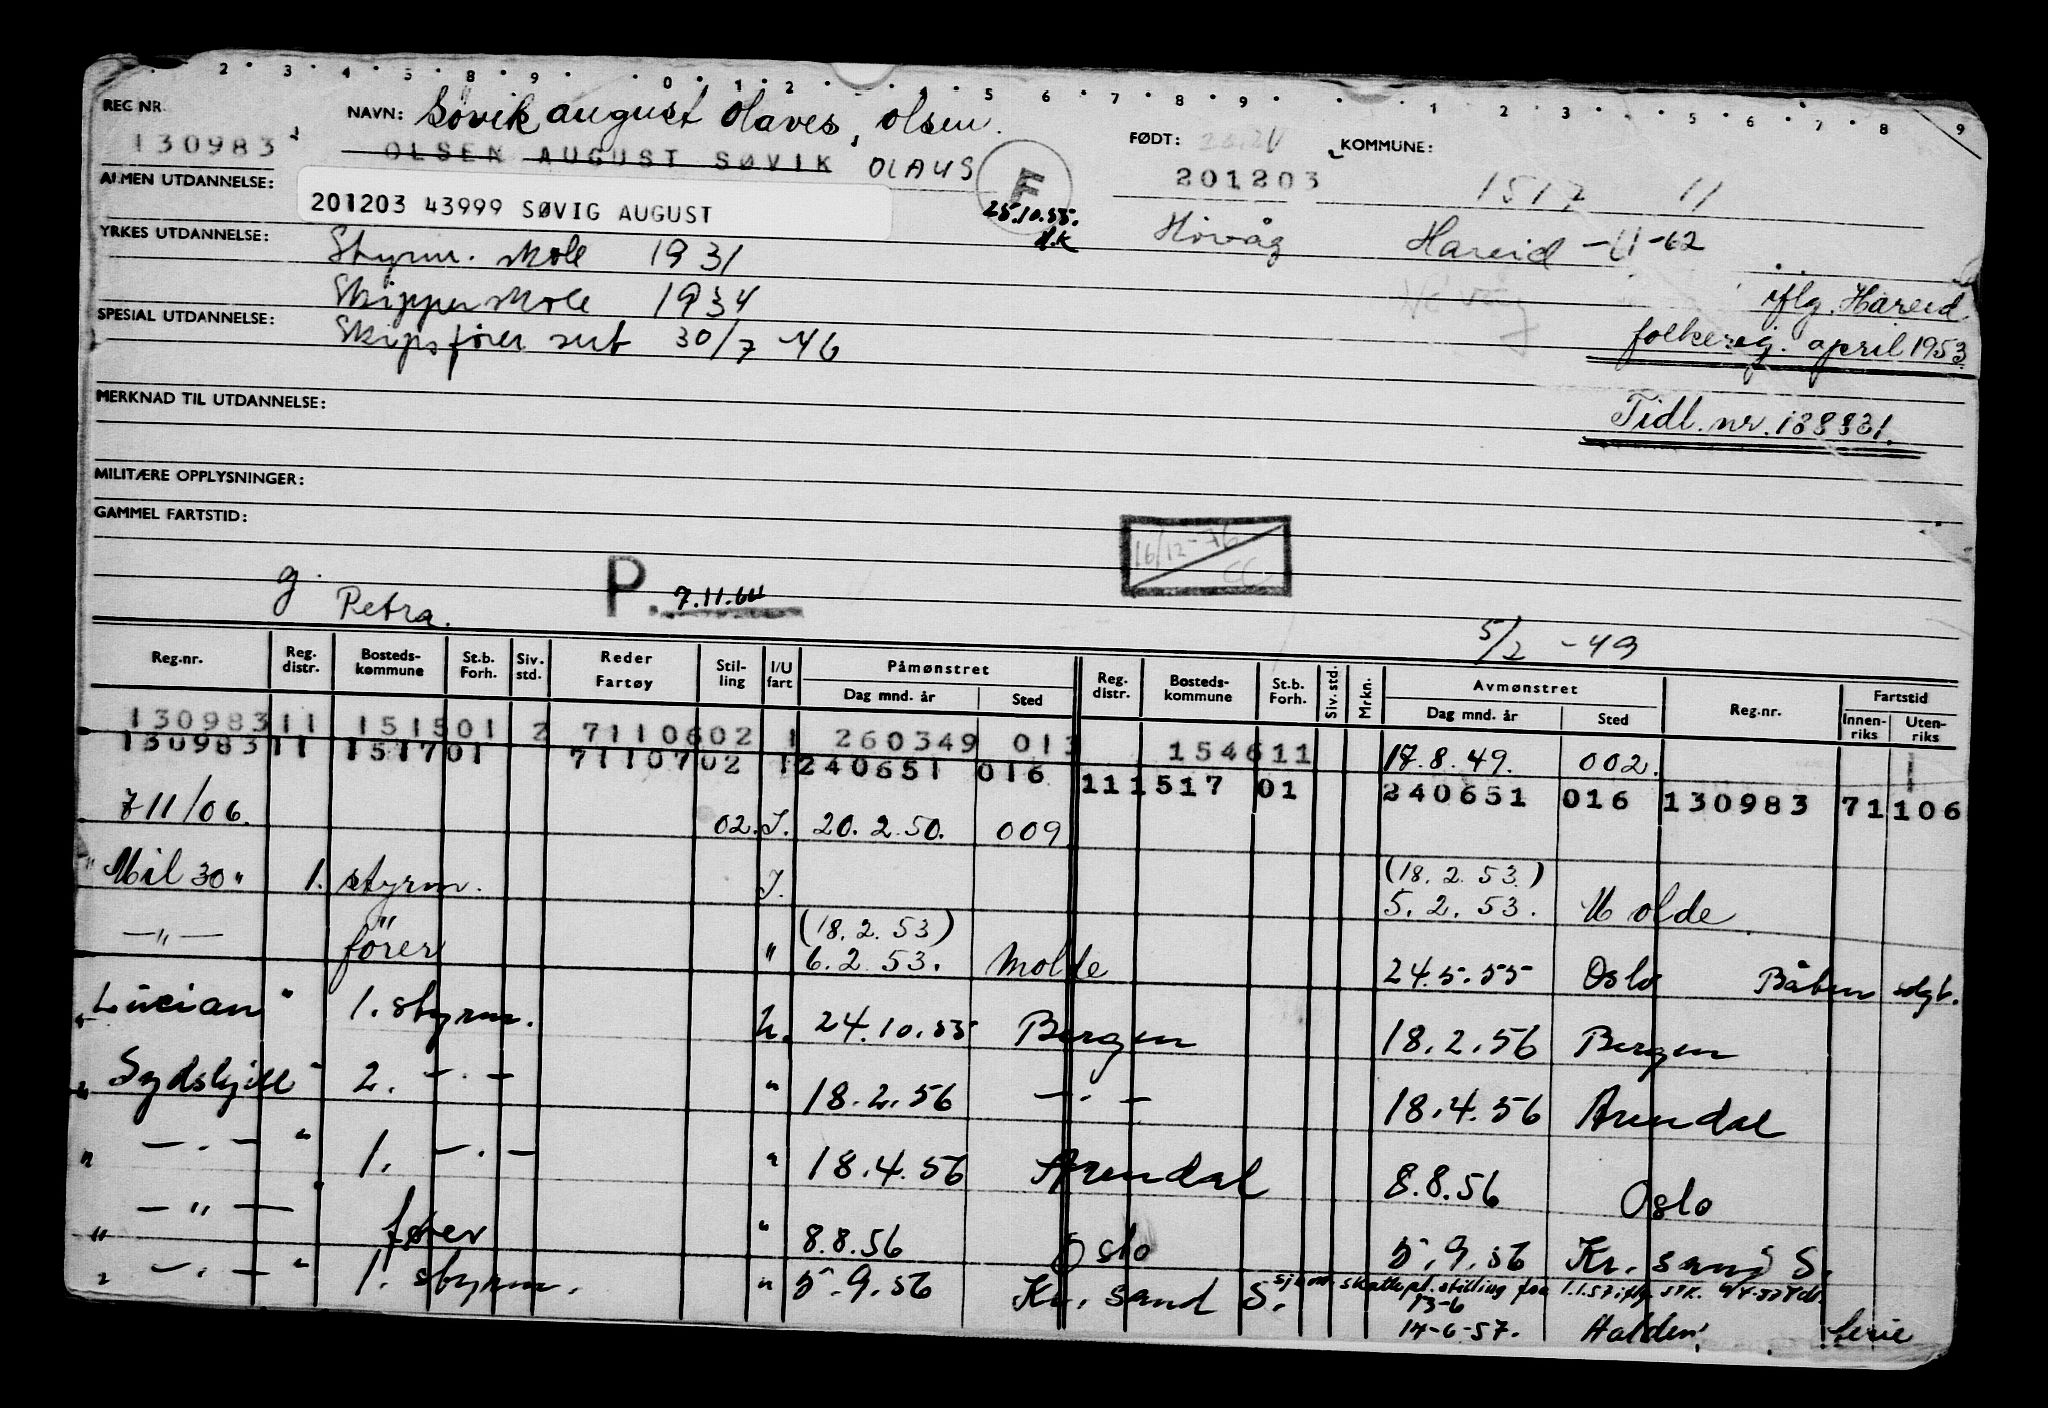 2 3 4 5 8 9 0 1 2 4 5 6 7 8 9 1 2 3 5 6 7 8 9
REG NR. 130983
NAVN: Søvik august Olaves, Olsen.
OLSEN AUGUST SØVIK OLAUS
F
25.10.55.
FØDT: 201203
KOMMUNE: 1517 11
Høvåg Hareid -11-62
ALMEN UTDANNELSE:
201203 43999 SØVIG AUGUST
YRKES UTDANNELSE: Styrm. skole 1931
Skipperskole 1934
iflg. Hareid
SPESIAL UTDANNELSE: Skipsfører sert 30/7 -46
folkereg. april 1953
MERKNAD TIL UTDANNELSE:
Tidl. nr. 138831.
MILITÆRE OPPLYSNINGER:
GAMMEL FARTSTID:
16/12-76
CC
g. Petra.
P. 7.11.64
5/2 -49
Reg.nr. Reg. distr. Bosteds-kommune St.b. Forh. Siv. std. Reder Fartøy Stil-ling I/U fart Påmønstret Dag mnd. år Sted Reg. distr. Bosteds-kommune St.b. Forh. Siv. std. Mrkn. Avmønstret Dag mnd. år Sted Reg.nr. Fartstid Innen-riks Uten-riks
130983 11 1515 01 2 71106 02 1 260349 013 1546 11 17.8.49. 002.
130983 11 1517 01 71107 02 1 240651 016 11 1517 01 240651 016 130983 71106
711/06. 02. I. 20.2.50. 009
" Mil 30" 1. styrm. I. (18.2.53) 5.2.53. Molde
—"— fører " (18.2.53) 6.2.53. Molde 24.5.55 Oslo Båten solgt.
" Lucian " 1. styrm. U. 24.10.55 Bergen 18.2.56 Bergen
" Sydskjell " 2. —.— " 18.2.56 —.— 18.4.56 Arendal
" —.— " 1. —.— " 18.4.56 Arendal 8.8.56 Oslo
" —"— fører " 8.8.56 Oslo 5.9.56 Kr. sand S.
" —.— " 1. styrm. " 5.9.56 Kr. sand S. sjøm. skattepl. stilling fra 1.1.57
13-6
14-6-57. Halden ferie